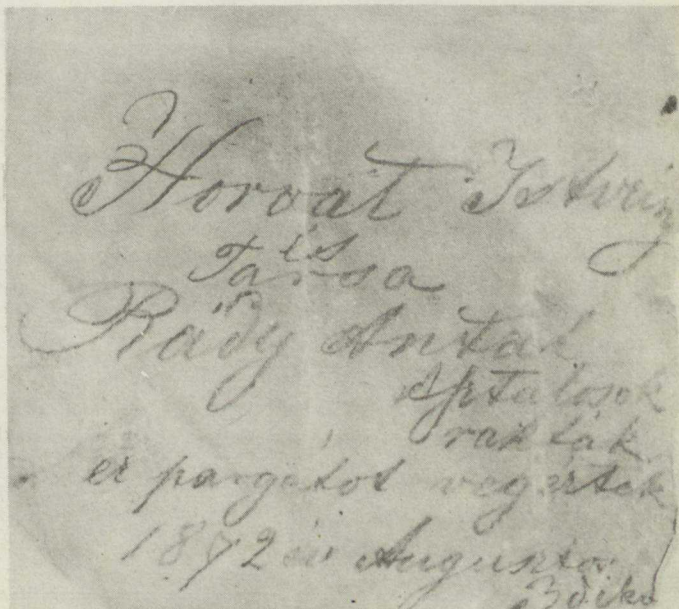 Horvat Istvány
és
Társa
Rády Antal
Asztalosok
rakták
er pargétot végezték
1872 év Augusztos
3dikn